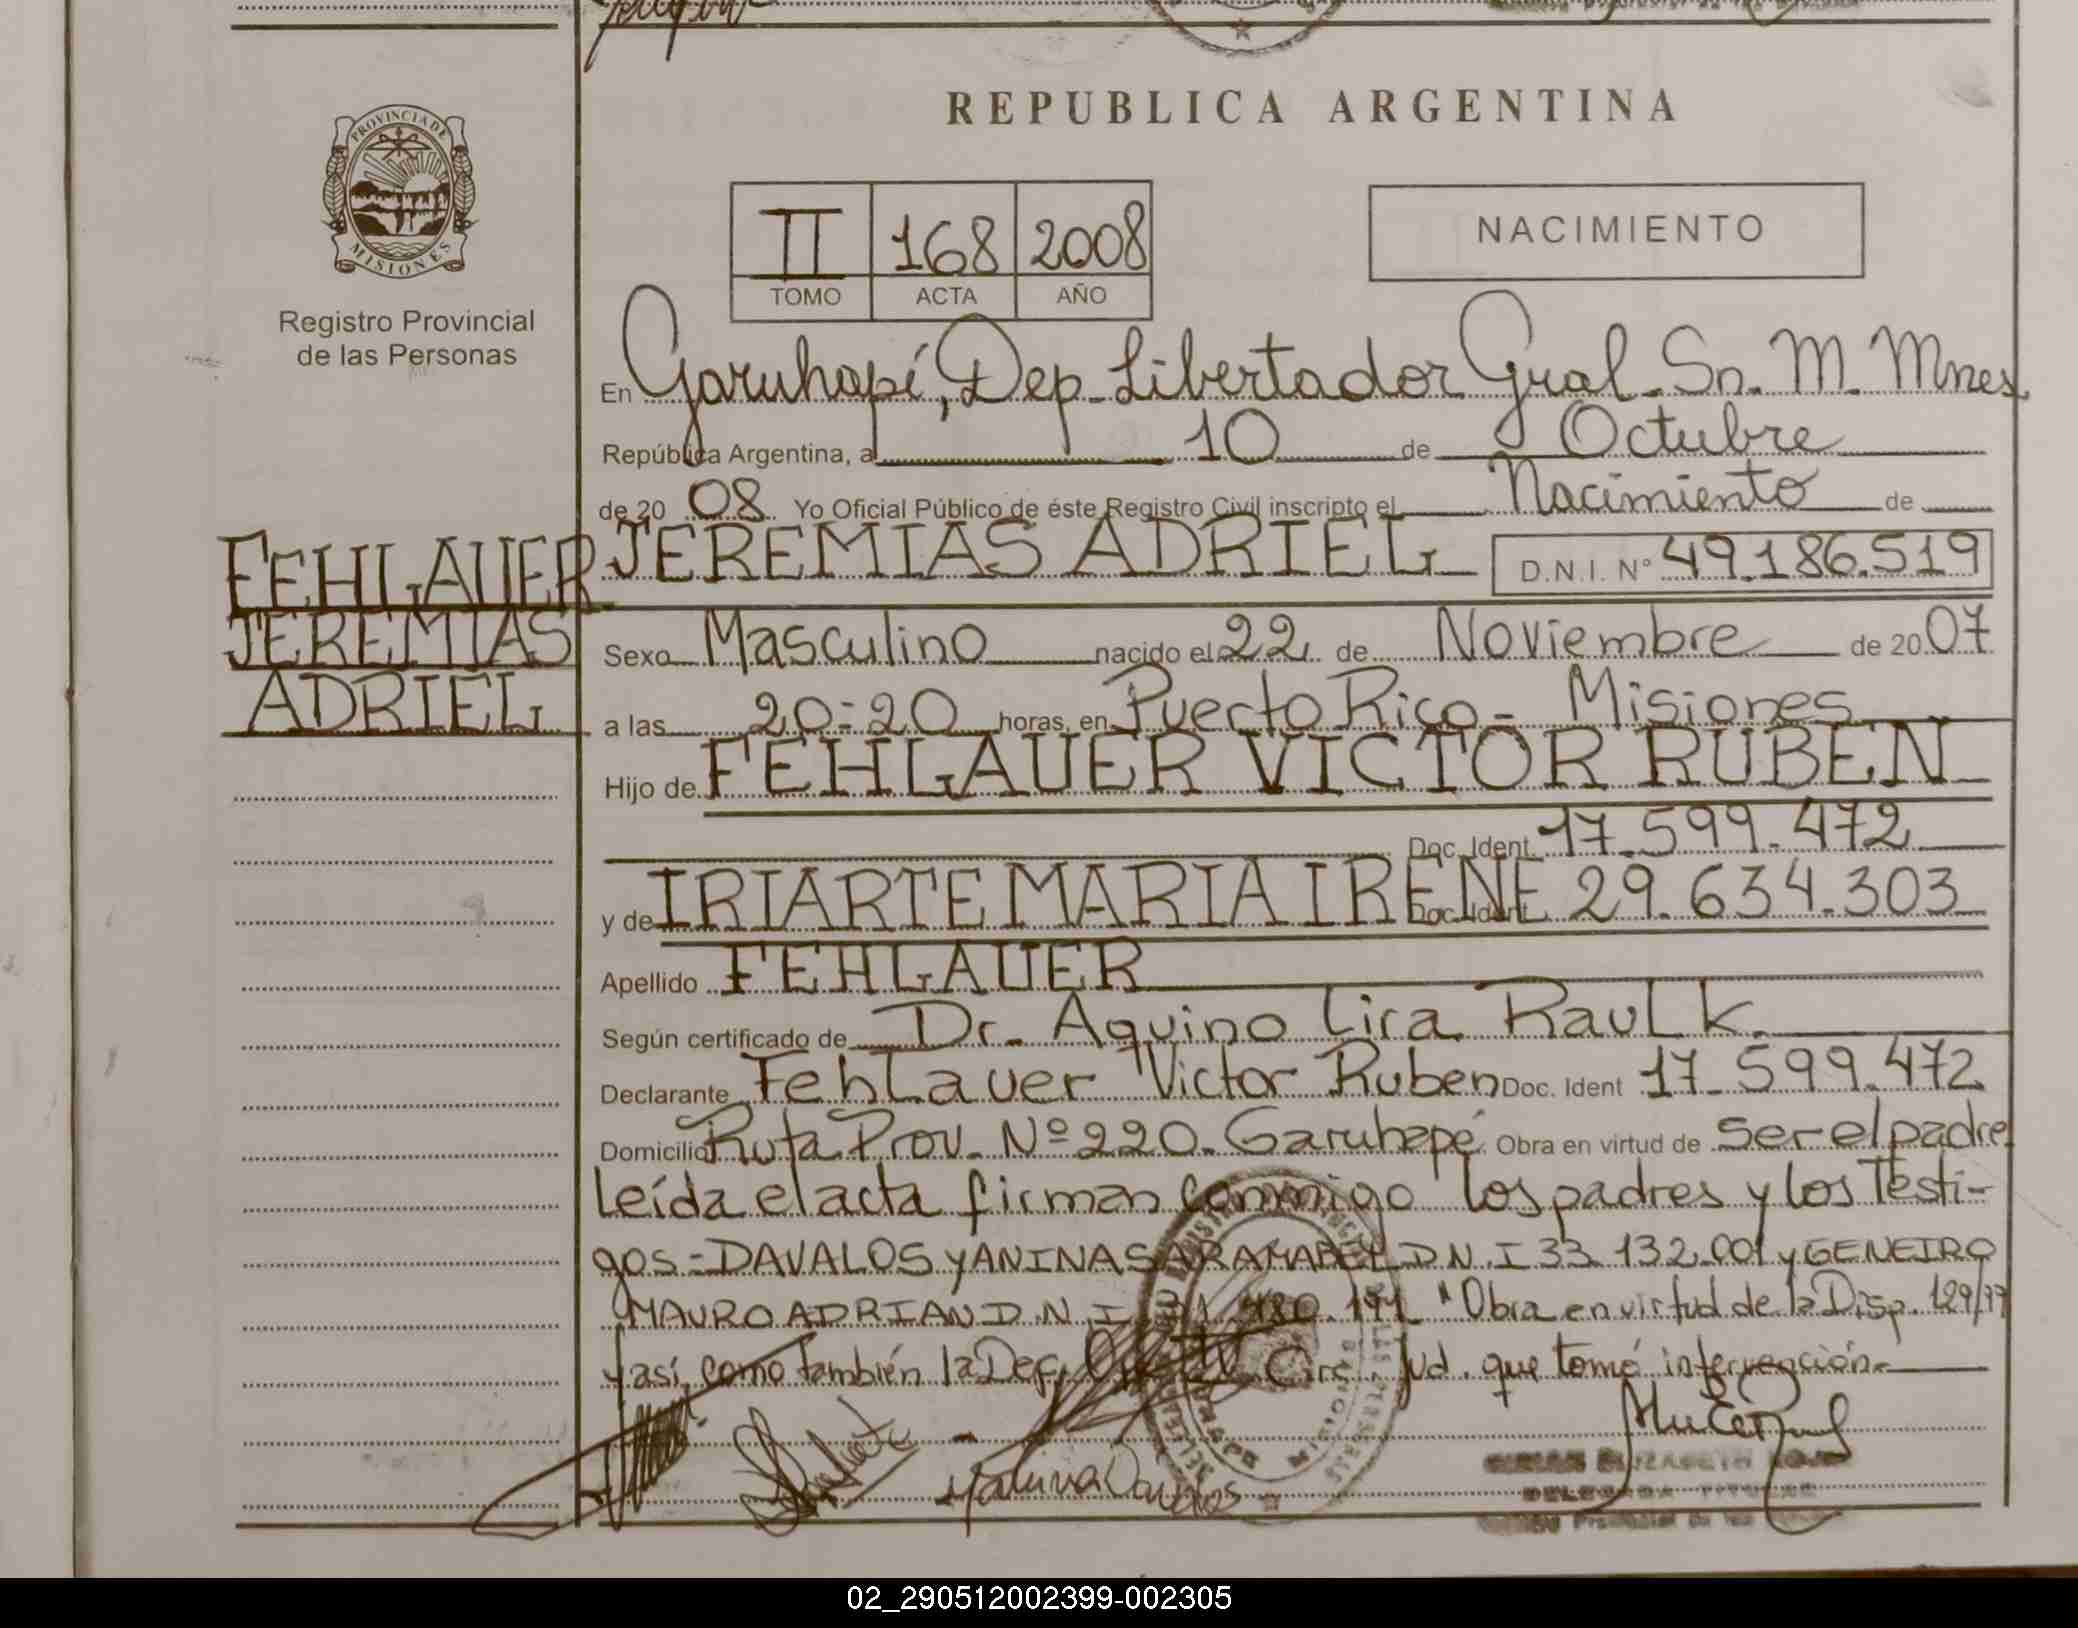 REPUBLICA ARGENTINA
PROVINCIA DE
MISIONES
Registro Provincial
de las Personas
II 168 2008
TOMO ACTA AÑO
NACIMIENTO
En Garuhapí, Dep. Libertador Gral. Sn. M. Mnes
República Argentina, a 10 de Octubre
de 20 08 Yo Oficial Público de éste Registro Civil inscripto el Nacimiento de
FEHLAUER
JEREMIAS
ADRIEL
JEREMIAS ADRIEL D.N.I. Nº 49.186.519
Sexo Masculino nacido el 22 de Noviembre de 20 07
a las 20:20 horas, en Puerto Rico - Misiones
Hijo de FEHLAUER VICTOR RUBEN
Doc. Ident. 17.599.472
y de IRIARTE MARIA IRENE Doc. Ident. 29.634.303
Apellido FEHLAUER
Según certificado de Dr. Aquino Lira Raul K.
Declarante Fehlauer Victor Ruben Doc. Ident 17.599.472
Domicilio Ruta Prov. Nº 220. Garuhapé Obra en virtud de ser el padre
Leída el acta firman conmigo los padres y los Testi-
gos = DAVALOS YANINA SARAMABEL D.N.I 33.132.001 y GENEIRO
MAURO ADRIAN D.N.I 480.194 "Obra en virtud de la Disp. 129/
y así como también la Def. Circ. Jud. que tomó intervención.
ELIZABETH
DELEGADA TITULAR
02_290512002399-002305